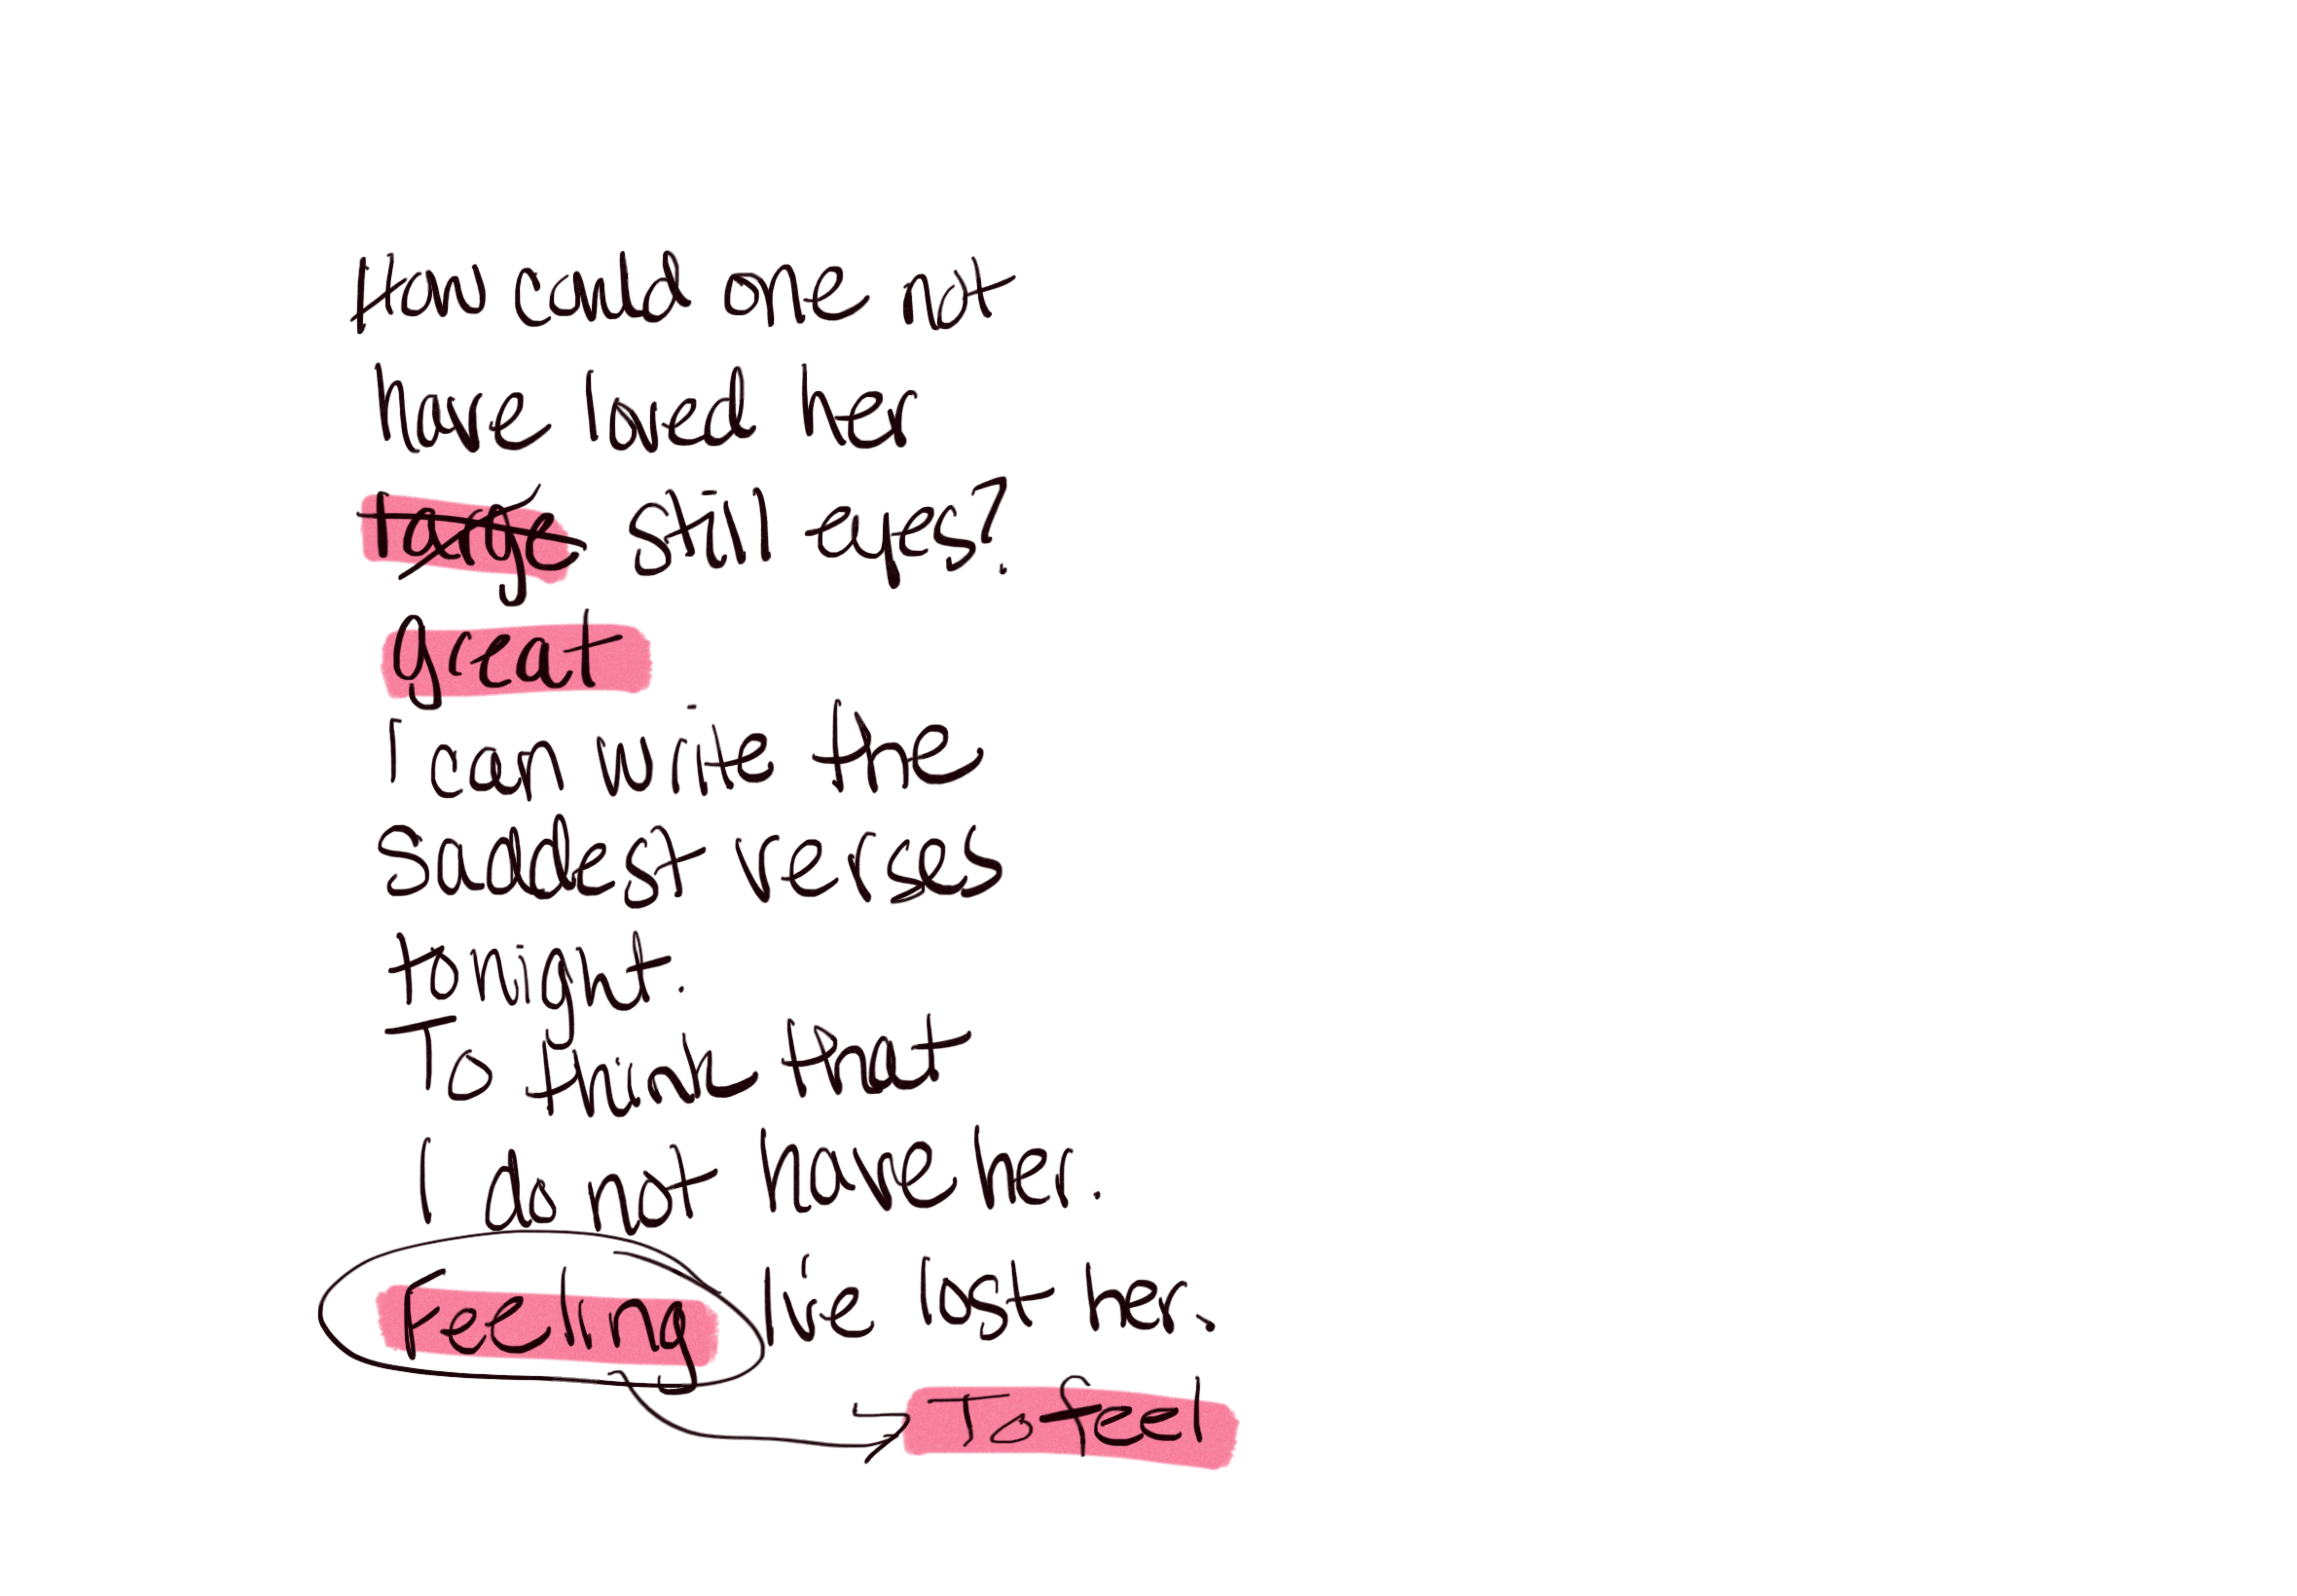 How could one not
have loved her
large still eyes?
great
I can write the
saddest verses
tonight.
To think that
I do not have her.
Feeling I've lost her.
To feel